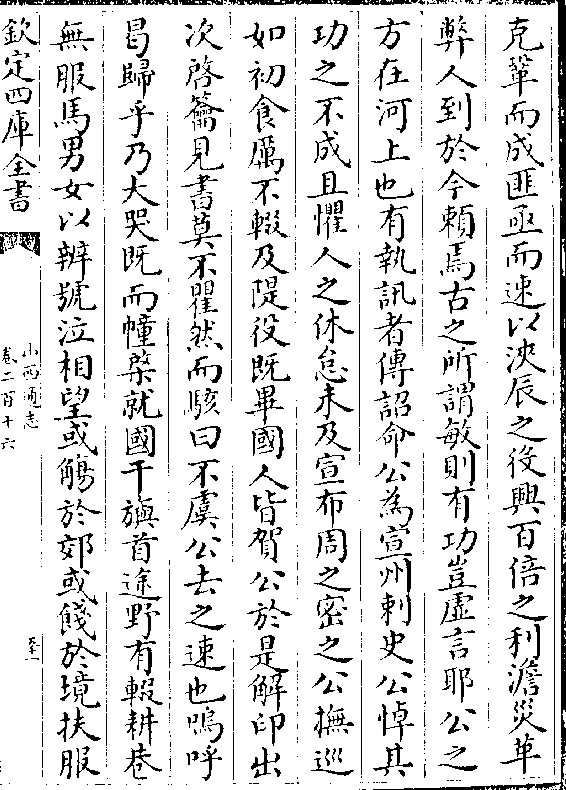 克鞏而成匪亟而速以浹辰之役興百倍之利澹災革
弊人到於今賴焉古之所謂敏則有功豈虛言耶公之
方在河上也有執訊者傳詔命公為宣州刺史公悼其
功之不成且懼人之休怠未及宣布周之密之公撫巡
如初食厲不輟及隄役既畢國人皆賀公於是解印出
次啓籥見書莫不瞿然而駭曰不虞公去之速也嗚呼
曷歸乎乃大哭既而幢棨就國干旟首途野有輟耕巷
無服馬男女以辨號泣相望或觴於郊或餞於境扶服
欽定四庫全書
山西通志
卷二百十六